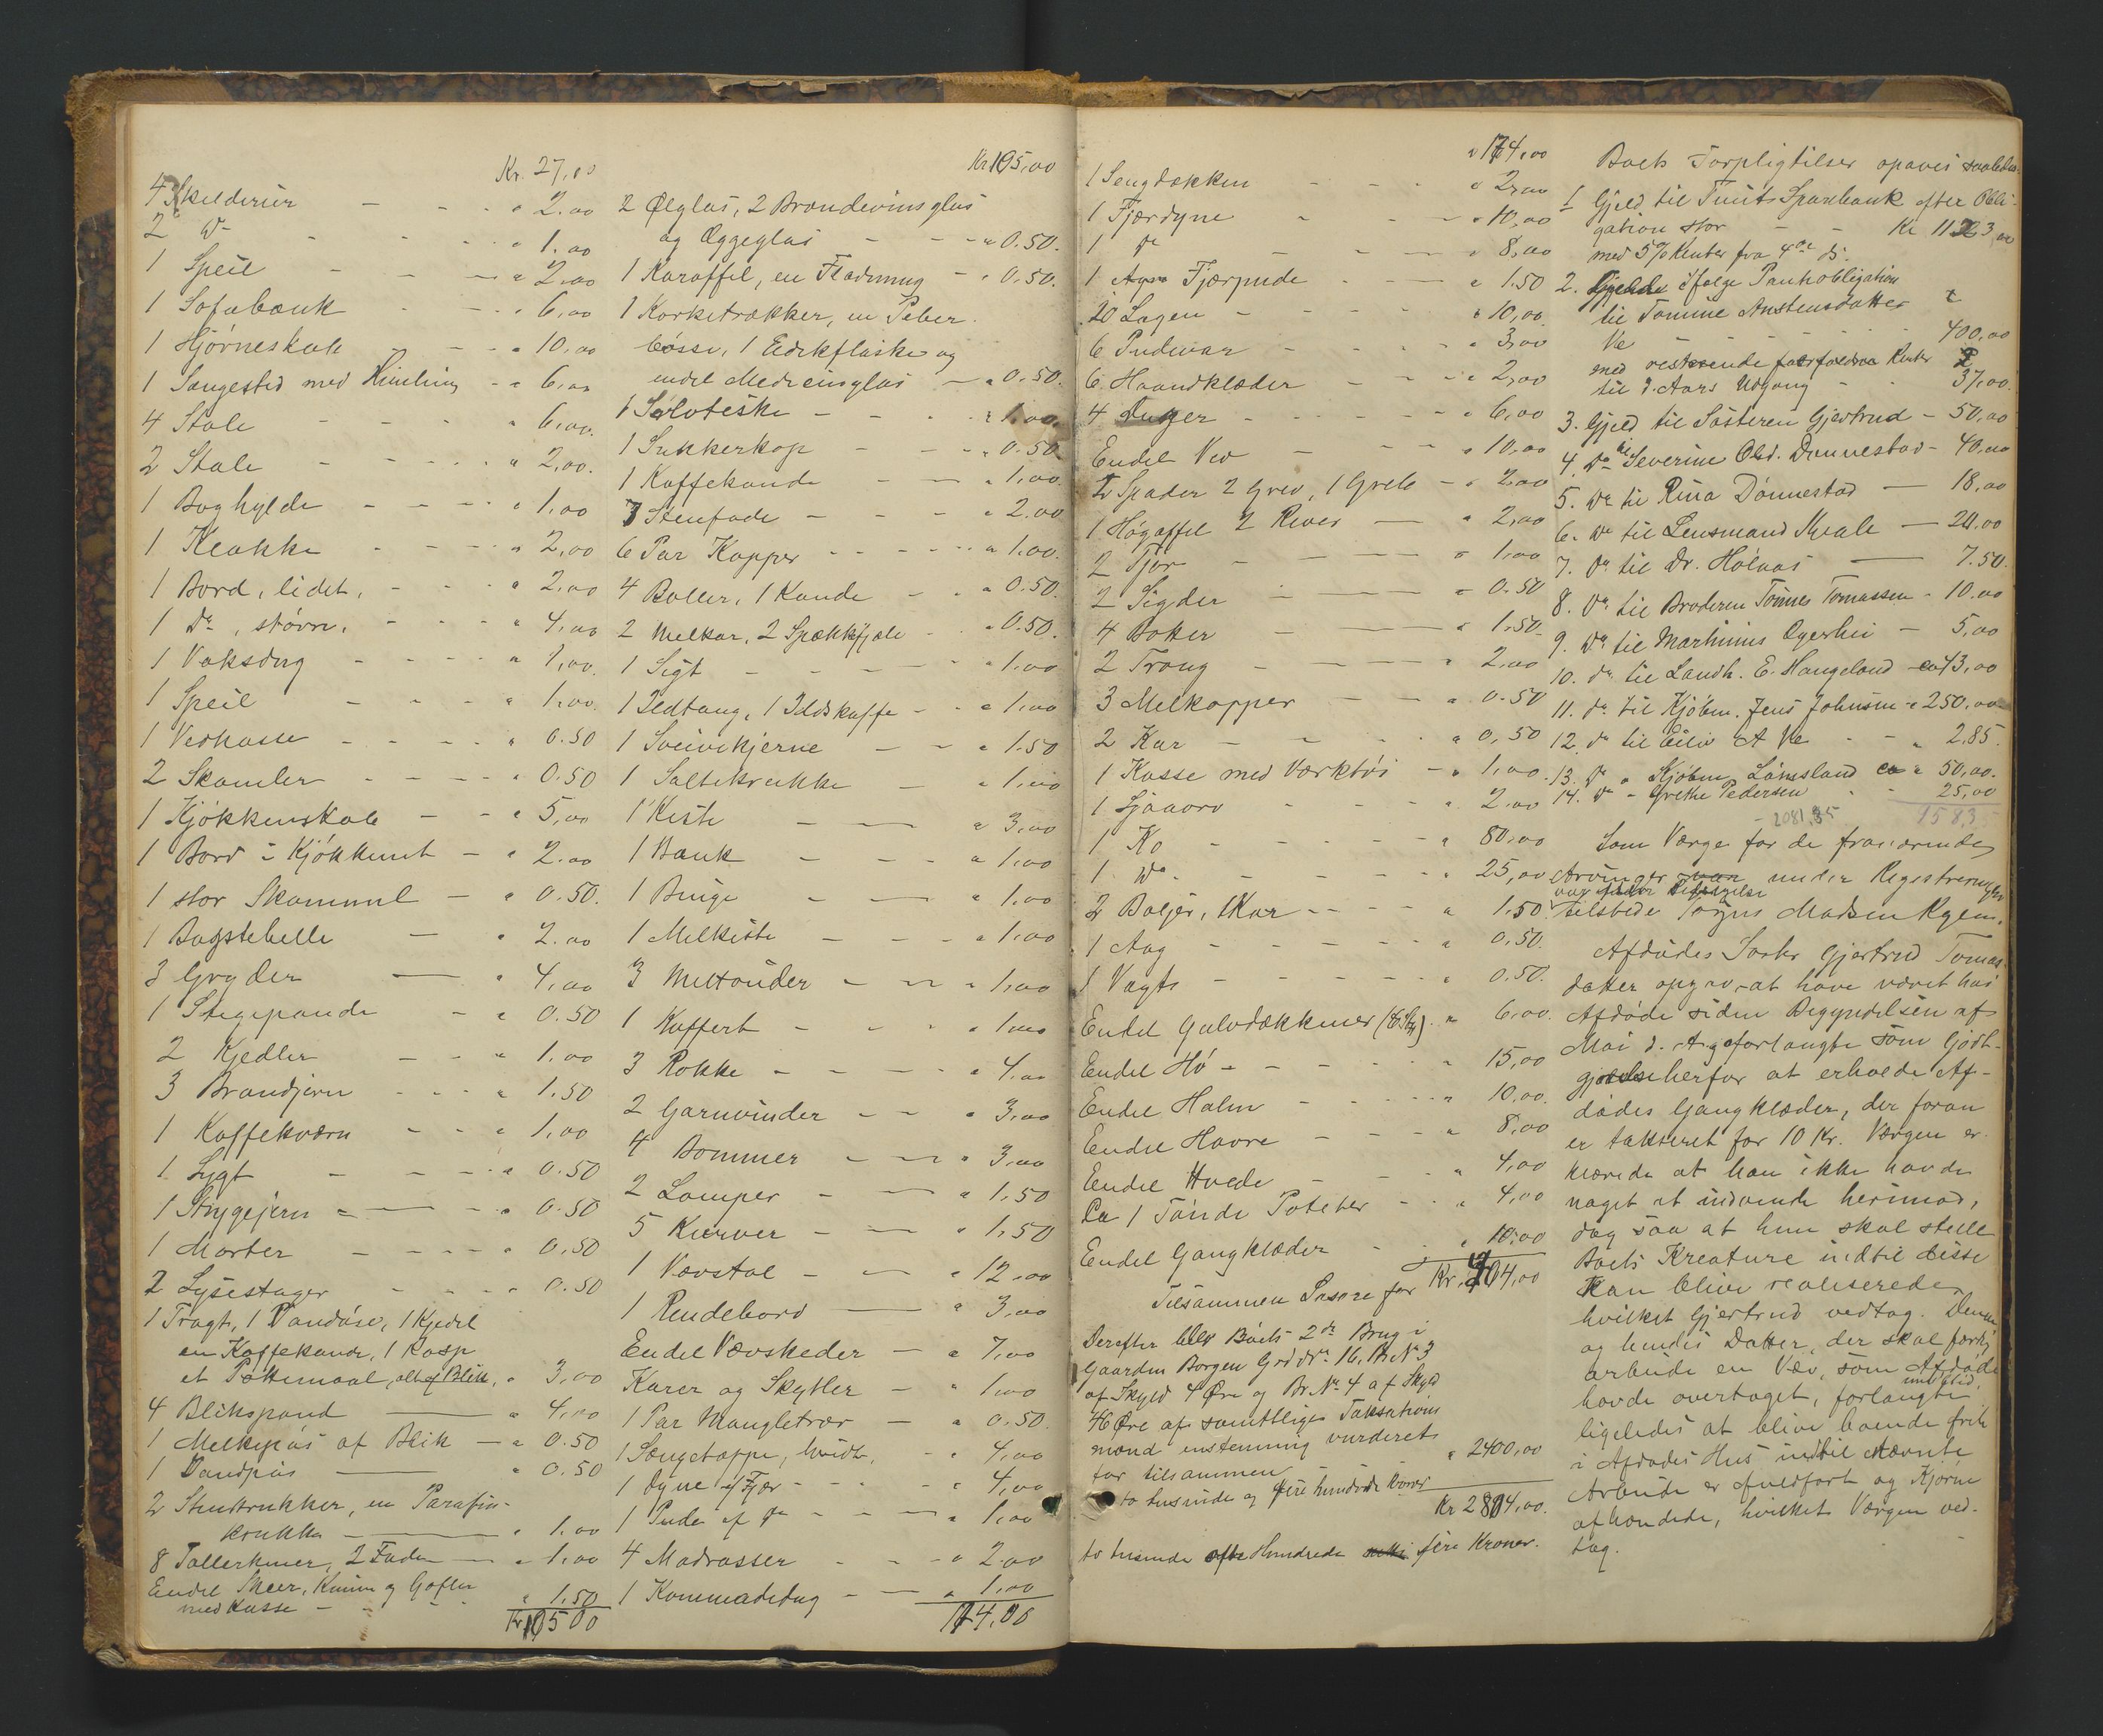 Kr. 27,00
4 Skilderier - - " 2.00
2 Do - - - " 1.00
1 Speil - - - " 2.00
1 Sofabænk - - " 6,00
1 Hjørneskab - - " 10.00
1 Sængested med Himling - " 6,00
4 Stole - - - " 6,00.
2 Stole - - - " 2,00.
1 Boghylde - - - " 1.00
1 Klokke - - - " 2,00
1 Bord, lidet, - - - " 2.00
1 Do, større, - - - " 4,00
1 Voksdug - - - " 1,00.
1 Speil - - - " 1.00.
1 Vedkasse - - - " 0.50
2 Skamler - - - " 0.50
1 Kjøkkenskab - - " 5,00
1 Bord i Kjøkkenet - " 2.00
1 stor Skammel - " 0.50.
1 Bagstehelle - " 2.00
3 Gryder - " 4,00
1 Stegepande - " 0.50
2 Kjedler - - " 1.00
3 Brandjern - - " 1.50
1 Kaffekværn - - " 1,00
1 Lygt - - - " 0.50
1 Strygejern - - - " 0.50
1 Morter - - - " 0,50
2 Lysestager - - - " 0.50
1 Tragt, 1 Vandøse, 1 Kjedel
en Kaffekande, 1 Rasp
et Pottemaal, alt af Blik, " 3,00
4 Blikspand - " 4,00
1 Melkepøs af Blik - " 0.50
1 Vandpøs - " 0.50
2 Stenkrukker, en Parafin-
krukke - " 1.00
8 Tallerkener, 2 Fade - " 1,00
Endel Skeer, Knive og Gafler
med Kasse - - " 1.50
Kr 105 00
Kr 105,00
2 Ølglas, 2 Brændevinsglas
og Æggeglas - - " 0.50.
1 Karaffel, en Fladmug - " 0.50.
1 Korketrækker, en Peber
bøsse, 1 Edikflaske og
endel Medicinglas - " 0.50.
1 Sølvteske - - - " 1.00.
1 Sukkerkop - - " 0.50.
1 Kaffekande - - " 1,00
7 Stenfade - - - " 2.00
6 Par Kopper - - - " 1.00.
4 Boller, 1 Kande - - " 0.50.
2 Melkar, 2 Spækkfjæle - " 0.50.
1 Sigt - - - " 1.00
1 Ildtang, 1 Ildskuffe - - " 1,00
1 Sveivekjerne - - " 1.50
1 Saltekrukke - " 1,00
1 Kiste - " 3,00
1 Bænk - - - " 1,00
1 Binge - - " 1,00
1 Melkiste - - - " 1,00
3 Meltønder - - " 1,00
1 Kuffert - - - " 1,00
3 Rokke - - - " 4,00
2 Garnvinder - - " 3,00
4 Bommer - - " 3,00
2 Lamper - - " 1,50
5 Kurver - - " 1.50
1 Vævstol - - " 12,00
1 Rendebord - " 3,00
Endel Vævskeder - " 7,00
Karer og Skytler - " 1,00
1 Par Mangletrær - " 0.50
1 Sængetæppe, hvidt, - " 4,00
1 Dyne af Fjær - - - " 4,00
1 Pude af Do - - " 1,00
4 Madrasser - - - " 2.00
1 Kommodedug - - " 1.00
174,00
" 174,00
1 Sengdækken - - - " 2,00
1 Fjærdyne - - - " 10,00
1 Do - - - " 8,00
1 Fjærpude - - " 1.50
20 Lagen - - - " 10,00.
6 Pudevar - - - " 3,00
6 Haandklæder - - - " 2,00
4 Duger - - - " 6,00
Endel Ved - - - " 10,00
2 Spader 2 Grev, 1 Greb - " 2,00
1 Høgaffel 2 River - " 2,00
2 Tjor - - " 1,00
2 Sigder - - " 0.50
4 Bøker - - " 1.50.
2 Traug - - " 2,00
3 Melkopper - - " 0.50
2 Kar - - - " 0,50
1 Kasse med Værktøi - " 1,00.
1 Ljaaorv - - - " 2.00
1 Ko - - - " 80,00
1 Do - - - " 25,00
2 Baljer, 1 Kar - - - " 1.50.
1 Aag - - - " 0.50.
1 Vægt - - - " 0.50.
Endel Gulvdækkener (8. Stk.) " 6,00.
Endel Hø - - - " 15,00
Endel Halm - - - " 10,00.
Endel Havre - - - " 8,00
Endel Hvede - - " 4,00
Ca 1 Tønde Poteter - - " 4,00
Endel Gangklæder - - " 10,00
Tilsammen Løsøre for Kr. 404,00
Derefter blev Boets 2de Brug i
Gaarden Borgen Grd.No 16, Br.No 3
af Skyld 4 Øre og Br.No 4 af Skyld
46 Øre af samtlige Taksations
mænd enstemmig vurderet
for tilsammen " 2400,00
to tusinde og fire hundrede Kroner
Kr 2804,00.
to tusinde otte Hundrede fire Kroner.
Boets Forpligtilser opgaves saaledes
1 Gjeld til Tveits Sparebank efter Obli-
gation stor - - Kr 1123,00
med 5% Renter fra 4de
2. Gjeld ifølge Pantobligation
til Tomine Anstensdatter "
Ve - - - 400,00
med resterende forfaldne Renter
til d. Aars Udgang - - 37,00.
3. Gjeld til Søsteren Gjertrud - 50,00
4. Do til Severine Olsd. Dønnestad - 40,00
5. Do til Rina Dønnestad - 18,00
6. Do til Lensmand Kvale - 20.00
7. Do til Dr. Hølaas - 7.50.
8. Do til Broderen Tønnes Tomassen - 10.00
9. Do til Martinius Ogerhei - 5,00
10. do til Landh. E. Haugeland - ca 43,00
11. do til Kjøbm. Jens Johnsen " 250,00
12. do til Eiliv A Ve - - " 2,85.
13. Do " Kjøbm. Lømsland ca " 50,00.
14. Do " Grethe Pedersen - - 25,00
2081,35 1583
Som Værge for de fraværende
Arvinger under Registreringen
var
tilstede Tørgus Madsen Ryen.
Afdødes Søster Gjertrud Tomas-
datter opgav at have været hos
Afdøde siden Begyndelsen af
Mai d. A. og forlangte som Godt-
gjørelse herfor at erholde Af-
dødes Gangklæder, der foran
er takseret for 10 Kr. Værgen er-
klærede at han ikke havde
noget at indvende herimod,
dog saa at hun skal stelle
Boets Kreature indtil disse
kan blive realiserede,
hvilket Gjertrud vedtog. Denne
og hendes Datter, der skal færdig
arbeide en Væv, som Afdøde
havde overtaget, forlangte
ligeledes at blive boende frit
i Afdødes Hus indtil nævnte
Arbeide er fuldført og Kjørne
afhændede, hvilket Værgen ved-
tog.